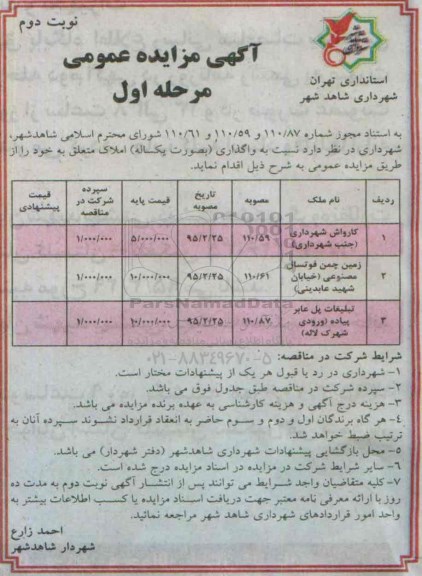 نوبت دوم
استانداری تهران
شهرداری شاهد شهر
آگهی مزایده عمومی
مرحله اول
به استناد مجوز شماره ۱۱۰/۸۷ و ۱۱۰/۵۹ و ۱۱۰/۶۱ شورای محترم اسلامی شاهدشهر،
شهرداری در نظر دارد نسبت به واگذاری (بصورت یکساله) املاک متعلق به خود را از
طریق مزایده عمومی به شرح ذیل اقدام نماید.
ردیف نام ملک مصوبه تاریخ مصوبه قیمت پایه سپرده شرکت در مناقصه قیمت پیشنهادی
۱ کارواش شهرداری (جنب شهرداری) ۱۱۰/۵۹ ۹۵/۲/۲۵ ۵/۰۰۰/۰۰۰ ۱/۰۰۰/۰۰۰
۲ زمین چمن فوتسال مصنوعی (خیابان شهید عابدینی) ۱۱۰/۶۱ ۹۵/۲/۲۵ ۱۰/۰۰۰/۰۰۰ ۱/۰۰۰/۰۰۰
۳ تبلیغات پل عابر پیاده (ورودی شهرک لاله) ۱۱۰/۸۷ ۹۵/۲/۲۵ ۱۰/۰۰۰/۰۰۰ ۱/۰۰۰/۰۰۰
ParsNamadData
شرایط شرکت در مناقصه:
۰۲۱-۸۸۳۴۹۶۷۰-۵
۱- شهرداری در رد یا قبول هر یک از پیشنهادات مختار است.
۲- سپرده شرکت در مناقصه طبق جدول فوق می باشد.
۳- هزینه درج آگهی و هزینه کارشناسی به عهده برنده مزایده می باشد.
۴- هر گاه برندگان اول و دوم و سوم حاضر به انعقاد قرارداد نشوند سپرده آنان به
ترتیب ضبط خواهد شد.
۵- محل بازگشایی پیشنهادات شهرداری شاهدشهر (دفتر شهردار) می باشد.
۶- سایر شرایط شرکت در مزایده در اسناد مزایده درج شده است.
۷- کلیه متقاضیان واجد شرایط می توانند پس از انتشار آگهی نوبت دوم به مدت ده
روز با ارائه معرفی نامه معتبر جهت دریافت اسناد مزایده یا کسب اطلاعات بیشتر به
واحد امور قراردادهای شهرداری شاهد شهر مراجعه نمائید.
احمد زارع
شهردار شاهدشهر